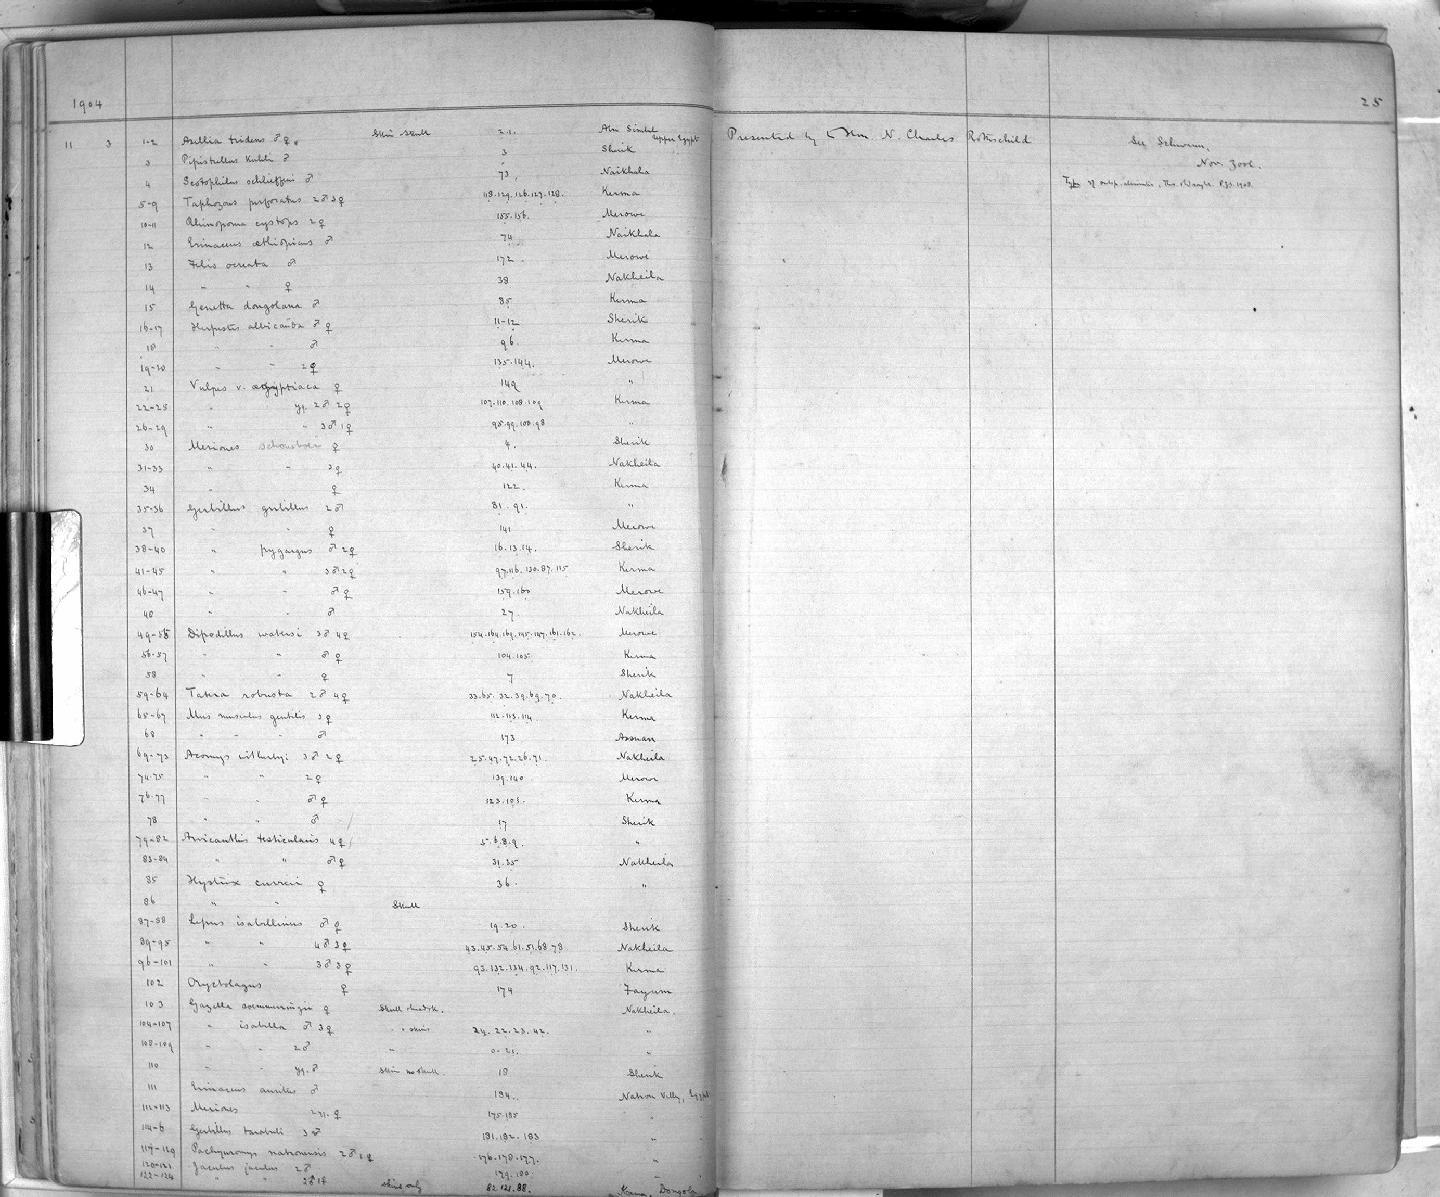 1904
25
11 3 1-2 Asellia tridens ♂♀ Skin skull 2.1. Abu Simbel Upper Egypt Presented by Hon N. Charles Rothschild See Schwann,
3 Pipistrellus Kuhli ♂ 3 Sherik Nov. Zool.
4 Scotophilus schlieffeni ♂ 73 Naikhala Type of
5-9 Taphozous perforatus 2♂3♀ 118.129.126.127.128. Kerma
10-11 Rhinopoma cystops 2♀ 155.156. Merowe
12 Erinaceus æthiopicus ♂ 74 Naikhala
13 Felis ocreata ♂ 172 Merowe
14 " " ♀ 38 Nakheila
15 Genetta dongolana ♂ 85 Kerma
16-17 Herpestes albicauda ♂♀ 11-12 Sherik
18 " " ♂ 96. Kerma
19-20 " " 2♀ 135.144. Merowe
21 Vulpes v. ægyptiaca ♀ 149 "
22-25 " yg. 2♂ 2♀ 107.110.108.109 Kerma
26-29 " " 3♂1♀ 95.99.100.98 "
30 Meriones ♀ 4. Sherik
31-33 " " 3♀ 40.41.44. Nakheila
34 " ♀ 122. Kerma
35-36 Gerbillus gerbillus 2♂ 81.91. "
37 " " ♀ 141 Merowe
38-40 " pygargus ♂2♀ 16.13.14. Sherik
41-45 " " 3♂2♀ 97.116.130.87.115 Kerma
46-47 " " ♂♀ 159.160 Merowe
48 " " ♂ 27. Nakheila
49-55 Dipodillus watersi 3♂4♀ 154.164.169.145.147.161.162. Merowe
56-57 " " ♂♀ 104.105 Kerma
58 " " ♀ 7 Sherik
59-64 Tatera robusta 2♂4♀ 33.65.32.39.69.70. Nakheila
65-67 Mus musculus gentilis 3♀ 112.113.114 Kerma
68 " " " ♂ 173 Assuan
69-73 Acomys witherbyi 3♂2♀ 25.47.72.26.71. Nakheila
74-75 " " 2♀ 139.140 Merowe
76-77 " " ♂♀ 123.103. Kerma
78 " " ♂ 17 Sherik
79-82 Arvicanthis testicularis 4♀ 5.6.8.9. "
83-84 " " ♂♀ 31.35 Nakheila
85 Hystrix ♀ 36. "
86 " " Skull
87-88 Lepus isabellinus ♂♀ 19.20. Sherik
89-95 " " 4♂3♀ 43.45.54.61.51.68.78 Nakheila
96-101 " " 3♂3♀ 93.132.134.92.117.131. Kerma
102 Oryctolagus ♀ 174 Fayum
103 Gazella soemmeringii ♀ Skull Nakheila.
104-107 " isabella ♂3♀ " skin 24.22.23.42. "
108-109 " " 2♂ " 0-21. "
110 " " yg.♂ Skin no skull. 18 Sherik
111 Erinaceus auritus ♂ 184. Natron Valley, Egypt
112-113 Meriones 2yg.♀ 175.185 "
114-6 Gerbillus tarabuli 3♂ 181.182.183 "
Pachyuromys natronensis 2♂1♀ 176.178.177. "
120-121 Jaculus jaculus 2♂ 179.180 "
122-124 " " 2♂1♀ skins only 82.121.88. Dongola